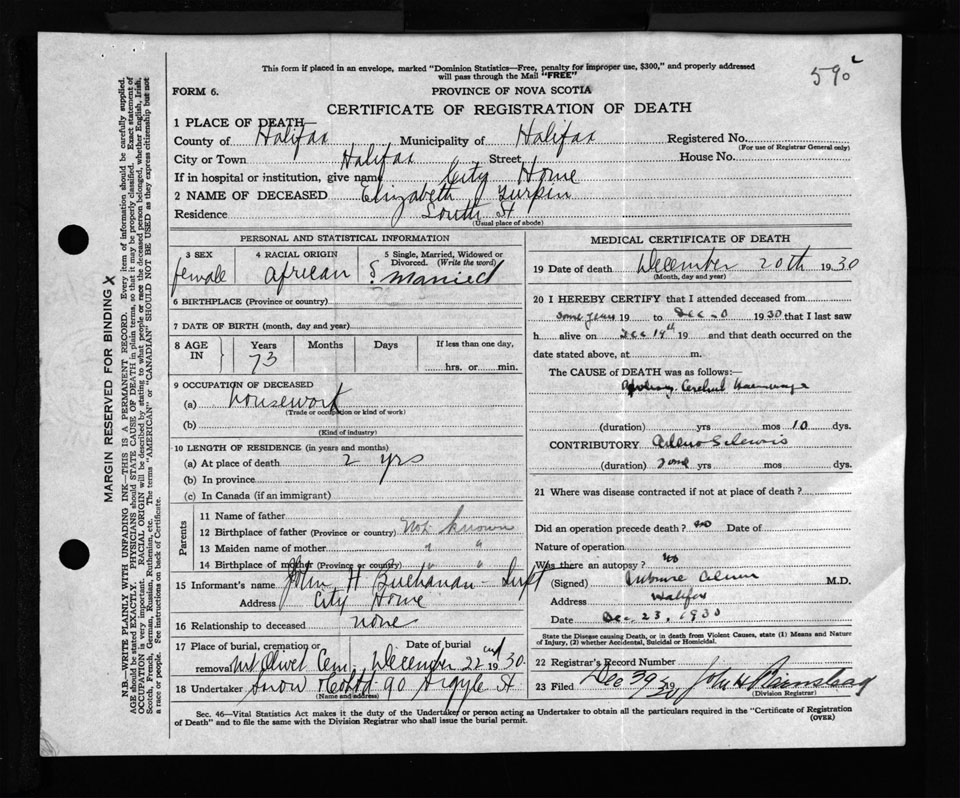 This form if placed in an envelope, marked "Dominion Statistics—Free, penalty for improper use, $300," and properly addressed
will pass through the Mail "FREE"
590 2
FORM 6.
PROVINCE OF NOVA SCOTIA
CERTIFICATE OF REGISTRATION OF DEATH
1 PLACE OF DEATH
County of Halifax Municipality of Halifax Registered No.
(For use of Registrar General only)
City or Town Halifax Street House No.
If in hospital or institution, give name City Home
2 NAME OF DECEASED Elizabeth Turpin
Residence South St
(Usual place of abode)
PERSONAL AND STATISTICAL INFORMATION
3 SEX 4 RACIAL ORIGIN 5 Single, Married, Widowed or
Divorced. (Write the word)
female african S. Married
6 BIRTHPLACE (Province or country)
7 DATE OF BIRTH (month, day and year)
8 AGE IN Years Months Days If less than one day,
73 hrs. or min.
9 OCCUPATION OF DECEASED
(a) housework
(Trade or occupation or kind of work)
(b)
(Kind of industry)
10 LENGTH OF RESIDENCE (in years and months)
(a) At place of death 2 yrs
(b) In province
(c) In Canada (if an immigrant)
Parents
11 Name of father
12 Birthplace of father (Province or country) Not known
13 Maiden name of mother " "
14 Birthplace of mother (Province or country) " "
15 Informant's name John H Buchanan - Supt
Address City Home
16 Relationship to deceased none
17 Place of burial, cremation or Date of burial
removal Mt Olivet Cem, December 22nd 1930.
18 Undertaker Snow & Co Ltd 90 Argyle St
(Name and address)
MEDICAL CERTIFICATE OF DEATH
19 Date of death December 20th 1930
(Month, day and year)
20 I HEREBY CERTIFY that I attended deceased from
some years 19 to Dec 1930 that I last saw
h alive on Dec 19th 19 and that death occurred on the
date stated above, at m.
The CAUSE of DEATH was as follows:—
Cerebral Haemorrhage
(duration) yrs mos 10 dys.
CONTRIBUTORY
(duration) some yrs mos dys.
21 Where was disease contracted if not at place of death?
Did an operation precede death? no Date of
Nature of operation
Was there an autopsy? no
(Signed) M.D.
Address Halifax
Date Dec 23, 1930
State the Disease causing Death, or in death from Violent Causes, state (1) Means and Nature
of Injury, (2) whether Accidental, Suicidal or Homicidal.
22 Registrar's Record Number
23 Filed Dec 19 John H
(Division Registrar)
Sec. 46—Vital Statistics Act makes it the duty of the Undertaker or person acting as Undertaker to obtain all the particulars required in the "Certificate of Registration
of Death" and to file the same with the Division Registrar who shall issue the burial permit. (OVER)
MARGIN RESERVED FOR BINDING X
N.B.—WRITE PLAINLY WITH UNFADING INK—THIS IS A PERMANENT RECORD. Every item of information should be carefully supplied.
AGE should be stated EXACTLY. PHYSICIANS should STATE CAUSE OF DEATH in plain terms, so that it may be properly classified. Exact statement of
OCCUPATION is very important. RACIAL ORIGIN will be described by stating to what people or race the deceased person belonged, whether English, Irish,
Scotch, French, German, Russian, Ruthenian, etc. The terms "AMERICAN" or "CANADIAN" SHOULD NOT BE USED as they express citizenship but not
a race or people. See instructions on back of Certificate.